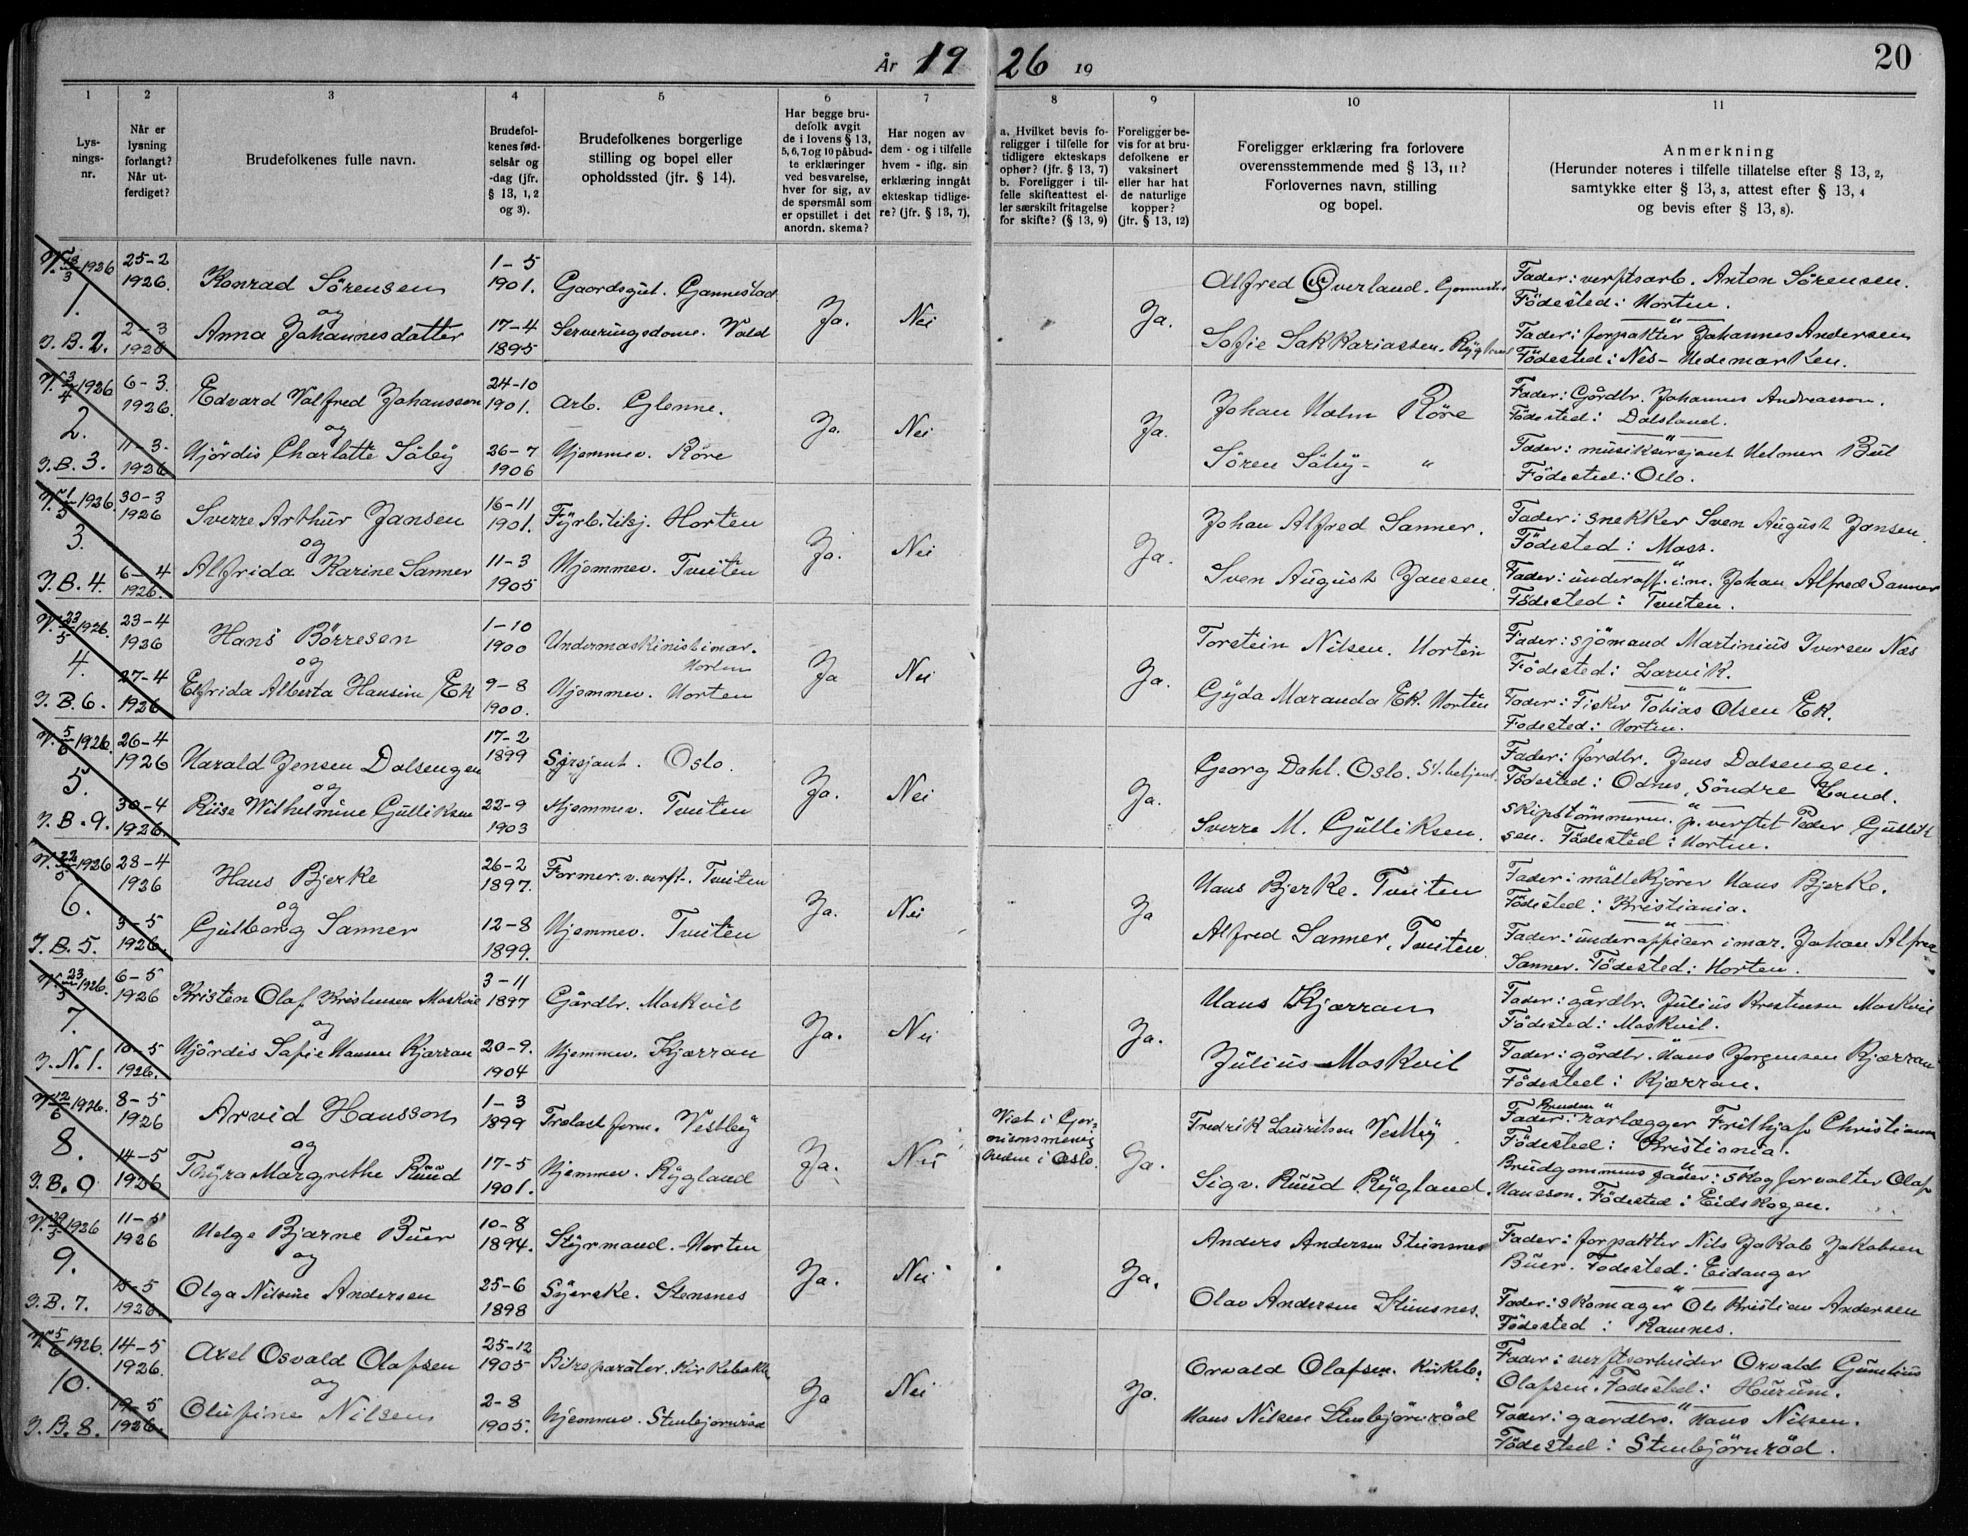 År 1926 19
20
1 2 3 4 5 6 7 8 9 10 11
Lys-
nings-
nr.
Når er
lysning
forlangt?
Når ut-
ferdiget?
Brudefolkenes fulle navn.
Brudefol-
kenes fød-
selsår og
-dag (jfr.
§ 13, 1, 2
og 3).
Brudefolkenes borgerlige
stilling og bopel eller
opholdssted (jfr. § 14).
Har begge bru-
defolk avgit
de i lovens § 13,
5, 6, 7 og 10 påbud-
te erklæringer
ved besvarelse,
hver for sig, av
de spørsmål som
er opstillet i det
anordn. skema?
Har nogen av
dem - og i tilfelle
hvem - iflg. sin
erklæring inngåt
ekteskap tidlige-
re? (jfr. § 13, 7).
a. Hvilket bevis fo-
religger i tilfelle for
tidligere ekteskaps
ophør? (jfr. § 13, 7)
b. Foreligger i til-
felle skifteattest el-
ler særskilt fritagelse
for skifte? (§ 13, 9)
Foreligger be-
vis for at bru-
defolkene er
vaksinert
eller har hat
de naturlige
kopper?
(jfr. § 13, 12)
Foreligger erklæring fra forlovere
overensstemmende med § 13, 11?
Forlovernes navn, stilling
og bopel.
Anmerkning
(Herunder noteres i tilfelle tillatelse efter § 13, 2,
samtykke etter § 13, 3, attest efter § 13, 4
og bevis efter § 13, 8).
V. 13/3 1926
1.
J.B. 2.
25-2
1926.
2-3
1926
Konrad Sörensen
og
Anna Johannesdatter
1-5
1901.
17-4
1895
Gaardsgut. Gannestad
Serveringsdame. Vold
Ja.
Nei
Ja.
Alfred Overland.
Sofie Sakkariassen.
Fader: verftsarb. Anton Sörensen.
Födested: Horten.
Fader: forpakter Johannes Andersen
Födested: Nes- Hedemarken.
V. 3/4 1926
2.
J.B. 3.
6-3.
1926.
11-3.
1926
Edvard Valfred Johansson
og
Hjördis Charlotte Säby
24-10
1901.
26-7
1906
Arb. Glenne.
Hjemmev. Röre
Ja.
Nei
Ja.
Johan Holm Röre
Sören Säby - "
Fader: Gårdbr. Johannes Andreasson.
Födested: Dalsland.
Fader: musiksersjant Helmer Bul
Födested: Oslo.
V. 1/5 1926.
3.
J.B. 4.
30-3
1926
6-4
1926
Sverre Arthur Jansen
og
Alfrida Karine Sanner
16-11
1901.
11-3
1905
Fyrbötikj. Horten
Hjemmev. Tveiten
Ja.
Nei
Ja.
Johan Alfred Sanner.
Sven August Jansen.
Fader: snekker Sven August Jansen.
Födested: Moss.
Fader: underoff. i m. Johan Alfred Sanner
Födested: Tveiten.
V. 23/5 1926.
4.
J.B. 6.
23-4
1926
27-4
1926
Hans Börresen
og
Elfrida Alberta Hansine Ek
1-10
1900
9-8
1900.
Undermaskinist i mar.
Horten
Hjemmev. Horten
Ja
Nei
Ja.
Torstein Nilsen. Horten
Gyda Maranda Ek. Horten
Fader: sjömand Martinius Iversen Næs
Födested: Larvik.
Fader: Fisker Tobias Olsen Ek.
Födested: Horten.
V. 5/6 1926.
5.
J.B. 9.
26-4
1926
30-4
1926.
Harald Jensen Dalsengen
og
Riise Wilhelmine Gulliksen
17-2
1899
22-9
1903
Sersjant. Oslo.
Hjemmev. Tveiten
Ja.
Nei
Ja.
Georg Dahl. Oslo. St. betjent.
Sverre M. Gulliksen.
Fader: Jordbr. Jens Dalsengen.
Födested: Odnes, Söndre Land.
skipstömmerm. p. verftet Peder Gullik
sen. Födested: Horten.
V. 22/5 1926
6.
J.B. 5.
28-4
1926
3-5
1926.
Hans Bjerke
og
Gulborg Sanner
26-2
1897.
12-8
1899.
Former. v. verft. Tveiten
Hjemmev. Tveiten
Ja.
Nei
Ja
Hans Bjerke. Tveiten
Alfred Sanner, Tveiten.
Fader: møllekjörer Hans Bjerke.
Födested: Kristiania.
Fader: underofficer i mar. Johan Alfred
Sanner. Födested: Horten.
V. 23/5 1926.
7.
J.N. 1.
6-5
1926
10-5
1926.
Kristen Olaf Kristensen Moskvil
og
Hjördis Sofie Hansen Kjærran
3-11
1897
20-9.
1904
Gårdbr. Moskvil
Hjemmev. Kjærran
Ja.
Nei
Ja.
Hans Kjærran
Julius Moskvil
Fader: gårdbr. Julius Kristensen Moskvil
Födested: Moskvil.
Fader: gårdbr. Hans Jorgensen Kjærran
Födested: Kjærran.
V. 12/6 1926.
8.
J.B. 9
8-5
1926
14-5
1926
Arvid Hansson
og
Thyra Margrethe Ruud
1-3
1899
17-5
1901.
Trelastform. Vestby
Hjemmev. Rygland
Ja.
Nei
Viet i Gar-
nisonsmenig
heden i Oslo.
Ja.
Fredrik Lauritsen Vestby
Sigv. Ruud Rygland.
Brudens
Fader: rörlægger Frithjof Christiansen
Födested: Kristiania.
Brudgommens fader: skogforvalter Olaf
Hansson. Födested: Eidskogen.
V. 29/5 1926
9.
J.B. 7.
11-5
1926
15-5
1926.
Helge Bjarne Buer
og
Olga Nilsine Andersen
10-8
1894.
25-6
1898
Styrmand. Horten
Syerske. Stensnes
Ja.
Nei
Ja.
Anders Andersen
Olav Andersen
Fader: forpakter Nils Jakob Jakobsen
Buer. Födested: Eidanger
Fader: skomager Ole Kristian Andersen
Födested: Ramnes.
V. 5/6 1926.
10.
J.B. 8.
14-5
1926.
19-5
1926.
Axel Osvald Olafsen
og
Olufine Nilsen
25-12
1905
2-8
1905.
Hjemmev. Stenbjörnröd
Ja
Nei
Ja.
Osvald Olafsen.
Hans Nilsen Stenbjörnröd
Fader: verftsarbeider Osvald Gunelius
Olafsen. Födested: Hurum.
Fader: gaardbr. Hans Nilsen.
Födested: Stenbjörnröd.